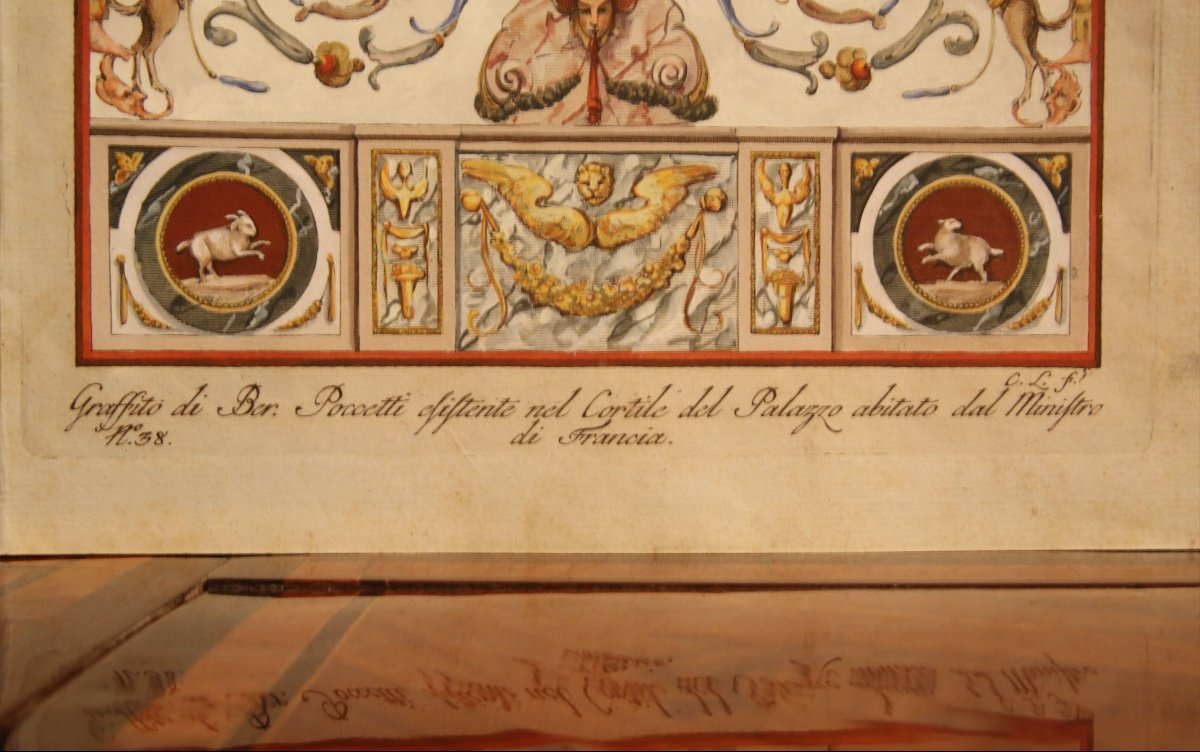 C. L. f.
Graffito di Ber. Poccetti esistente nel Cortile del Palazzo abitato dal Ministro
N.º 38.
di Francia.